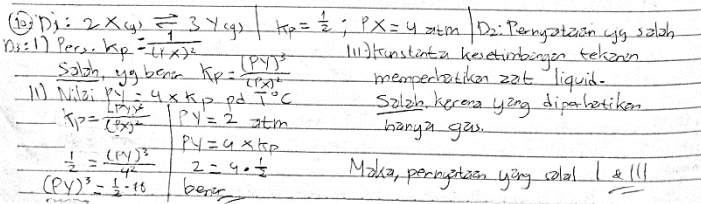 10. Di: 2 X(g) ⇌ 3 Y(g) | Kp = 1/2 ; PX = 4 atm | D2: Pernyataan yg salah
D3: 1) Pers. Kp = 1/(PX)²
Salah, yg benar Kp = (PY)³/(PX)²
11) Nilai PY = 4 x Kp pd T°C
Kp = (PY)³/(PX)²
1/2 = (PY)³/4²
(PY)³ = 1/2 . 16
PY = 2 atm
PY = 4 x Kp
2 = 4 . 1/2
benar
111) Kunstanta kesetimbangan tekanan
memperhatikan zat liquid.
Salah, karena yang diperhatikan
hanya gas.
Maka, pernyataan yang salah 1 & 111